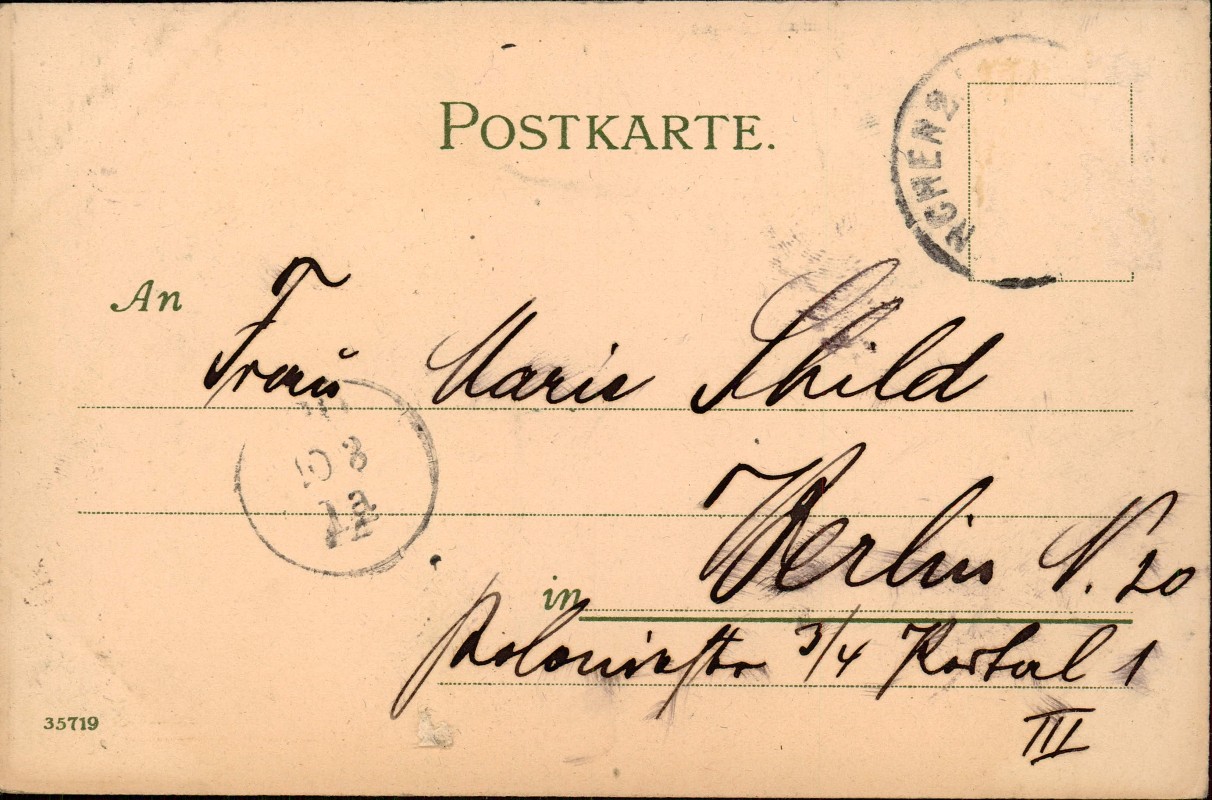 POSTKARTE.
ACHEN 2
An
Frau Marie Schild
10 3
in Berlin N. 20
Koloniestr 3/4 Portal 1
III
35719